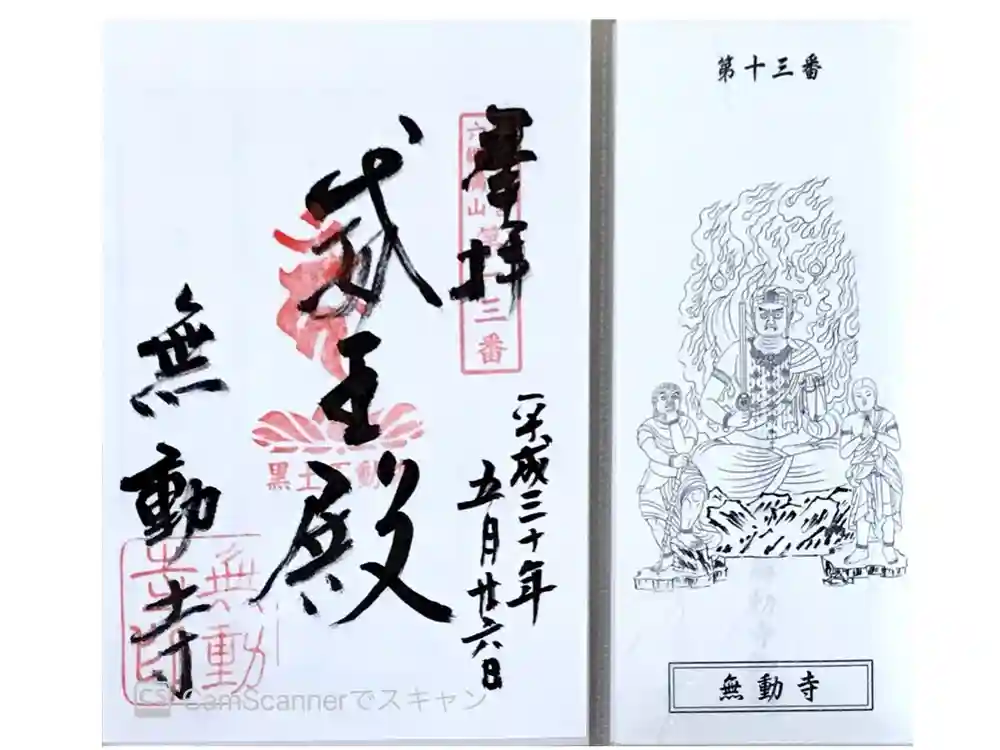 第十三番
無動寺
奉拝
六郷満山
三番
平成三十年
五月廿六日
威王殿
黒土不動
無動寺
無動
寺印
CS CamScannerでスキャン